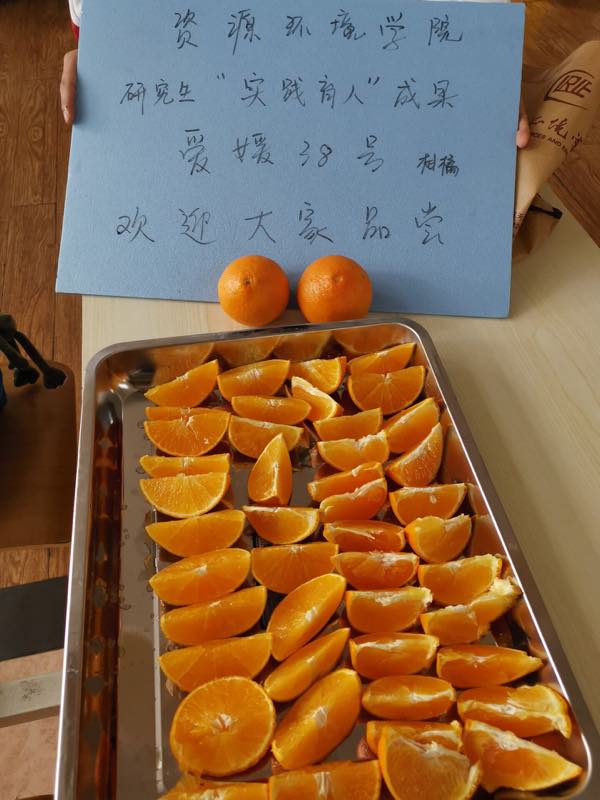 资源环境学院
研究生“实践育人”成果
爱媛38号 柑橘
欢迎大家品尝